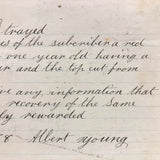 Strayed
es of the subscriber a red
one year old having a
er and the top cut from
ve any information that
recovery of the same
by rewarded
8 Albert young,